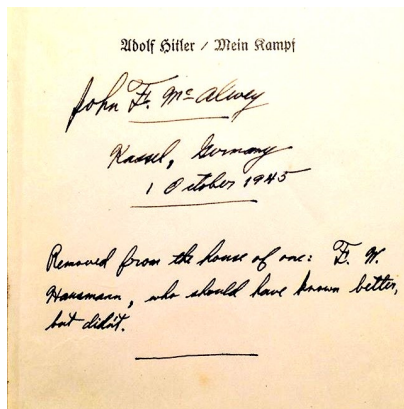 Adolf Hitler / Mein Kampf
John F. McAlvey
Kassel, Germany
1 October 1945
Removed from the house of one: F. W.
Hausmann, who should have known better,
but didn't.